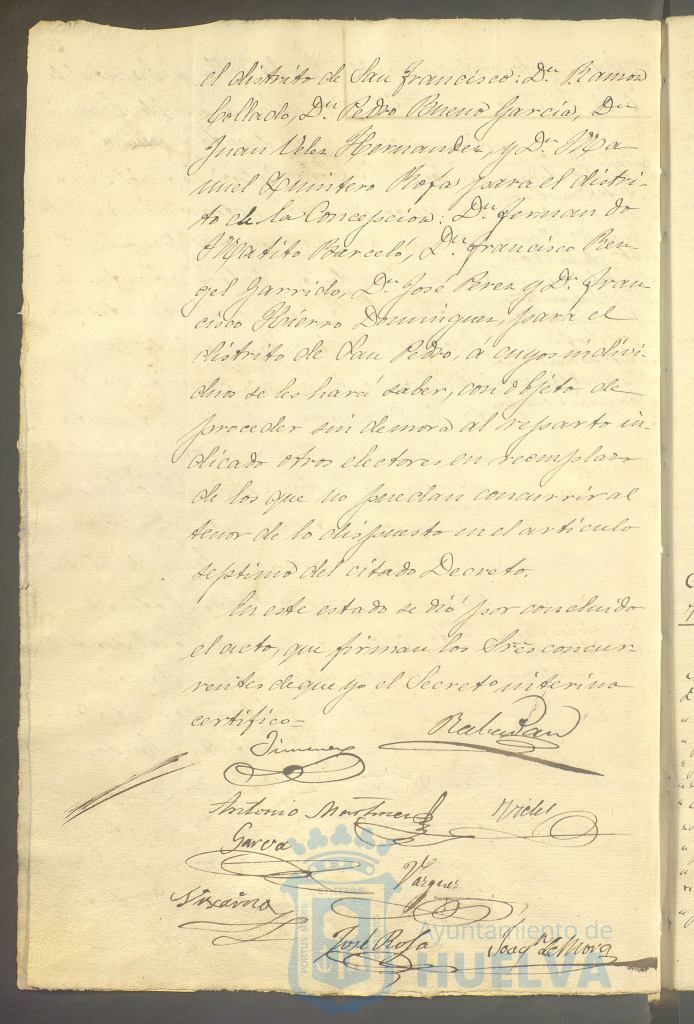 el distrito de San Francisco: Dn. Ramon
Collado, Dn. Pedro Bueno García, Dn
Juan Velez Hernandez, y Dn. Ma
nuel Quintero Rofa para el distri-
to de la Concepcion: Dn. Fernando
Matito Barceló, Dn. Francisco Ren-
gel Garrido, Dn. José Perez y Dn. Fran-
cisco Hierro Dominguez, para el
distrito de San Pedro, á cuyos indivi-
duos se les hará saber, con objeto de
proceder sin demora al reparto in-
dicado otros electores en reemplazo
de los que no puedan concurrir al
tenor de lo dispuesto en el artículo
septimo del citado Decreto.
En este estado se dió por concluido
el acto, que firman los Sres concur-
rentes de que yo el Secreto interino
certifico=
Jimenez
Antonio Martinez
Garcia
Vazquez
Vizcaino
José Rofa
Joaqn. de Mora
PORTUS MARIS
Ayuntamiento de
HUELVA